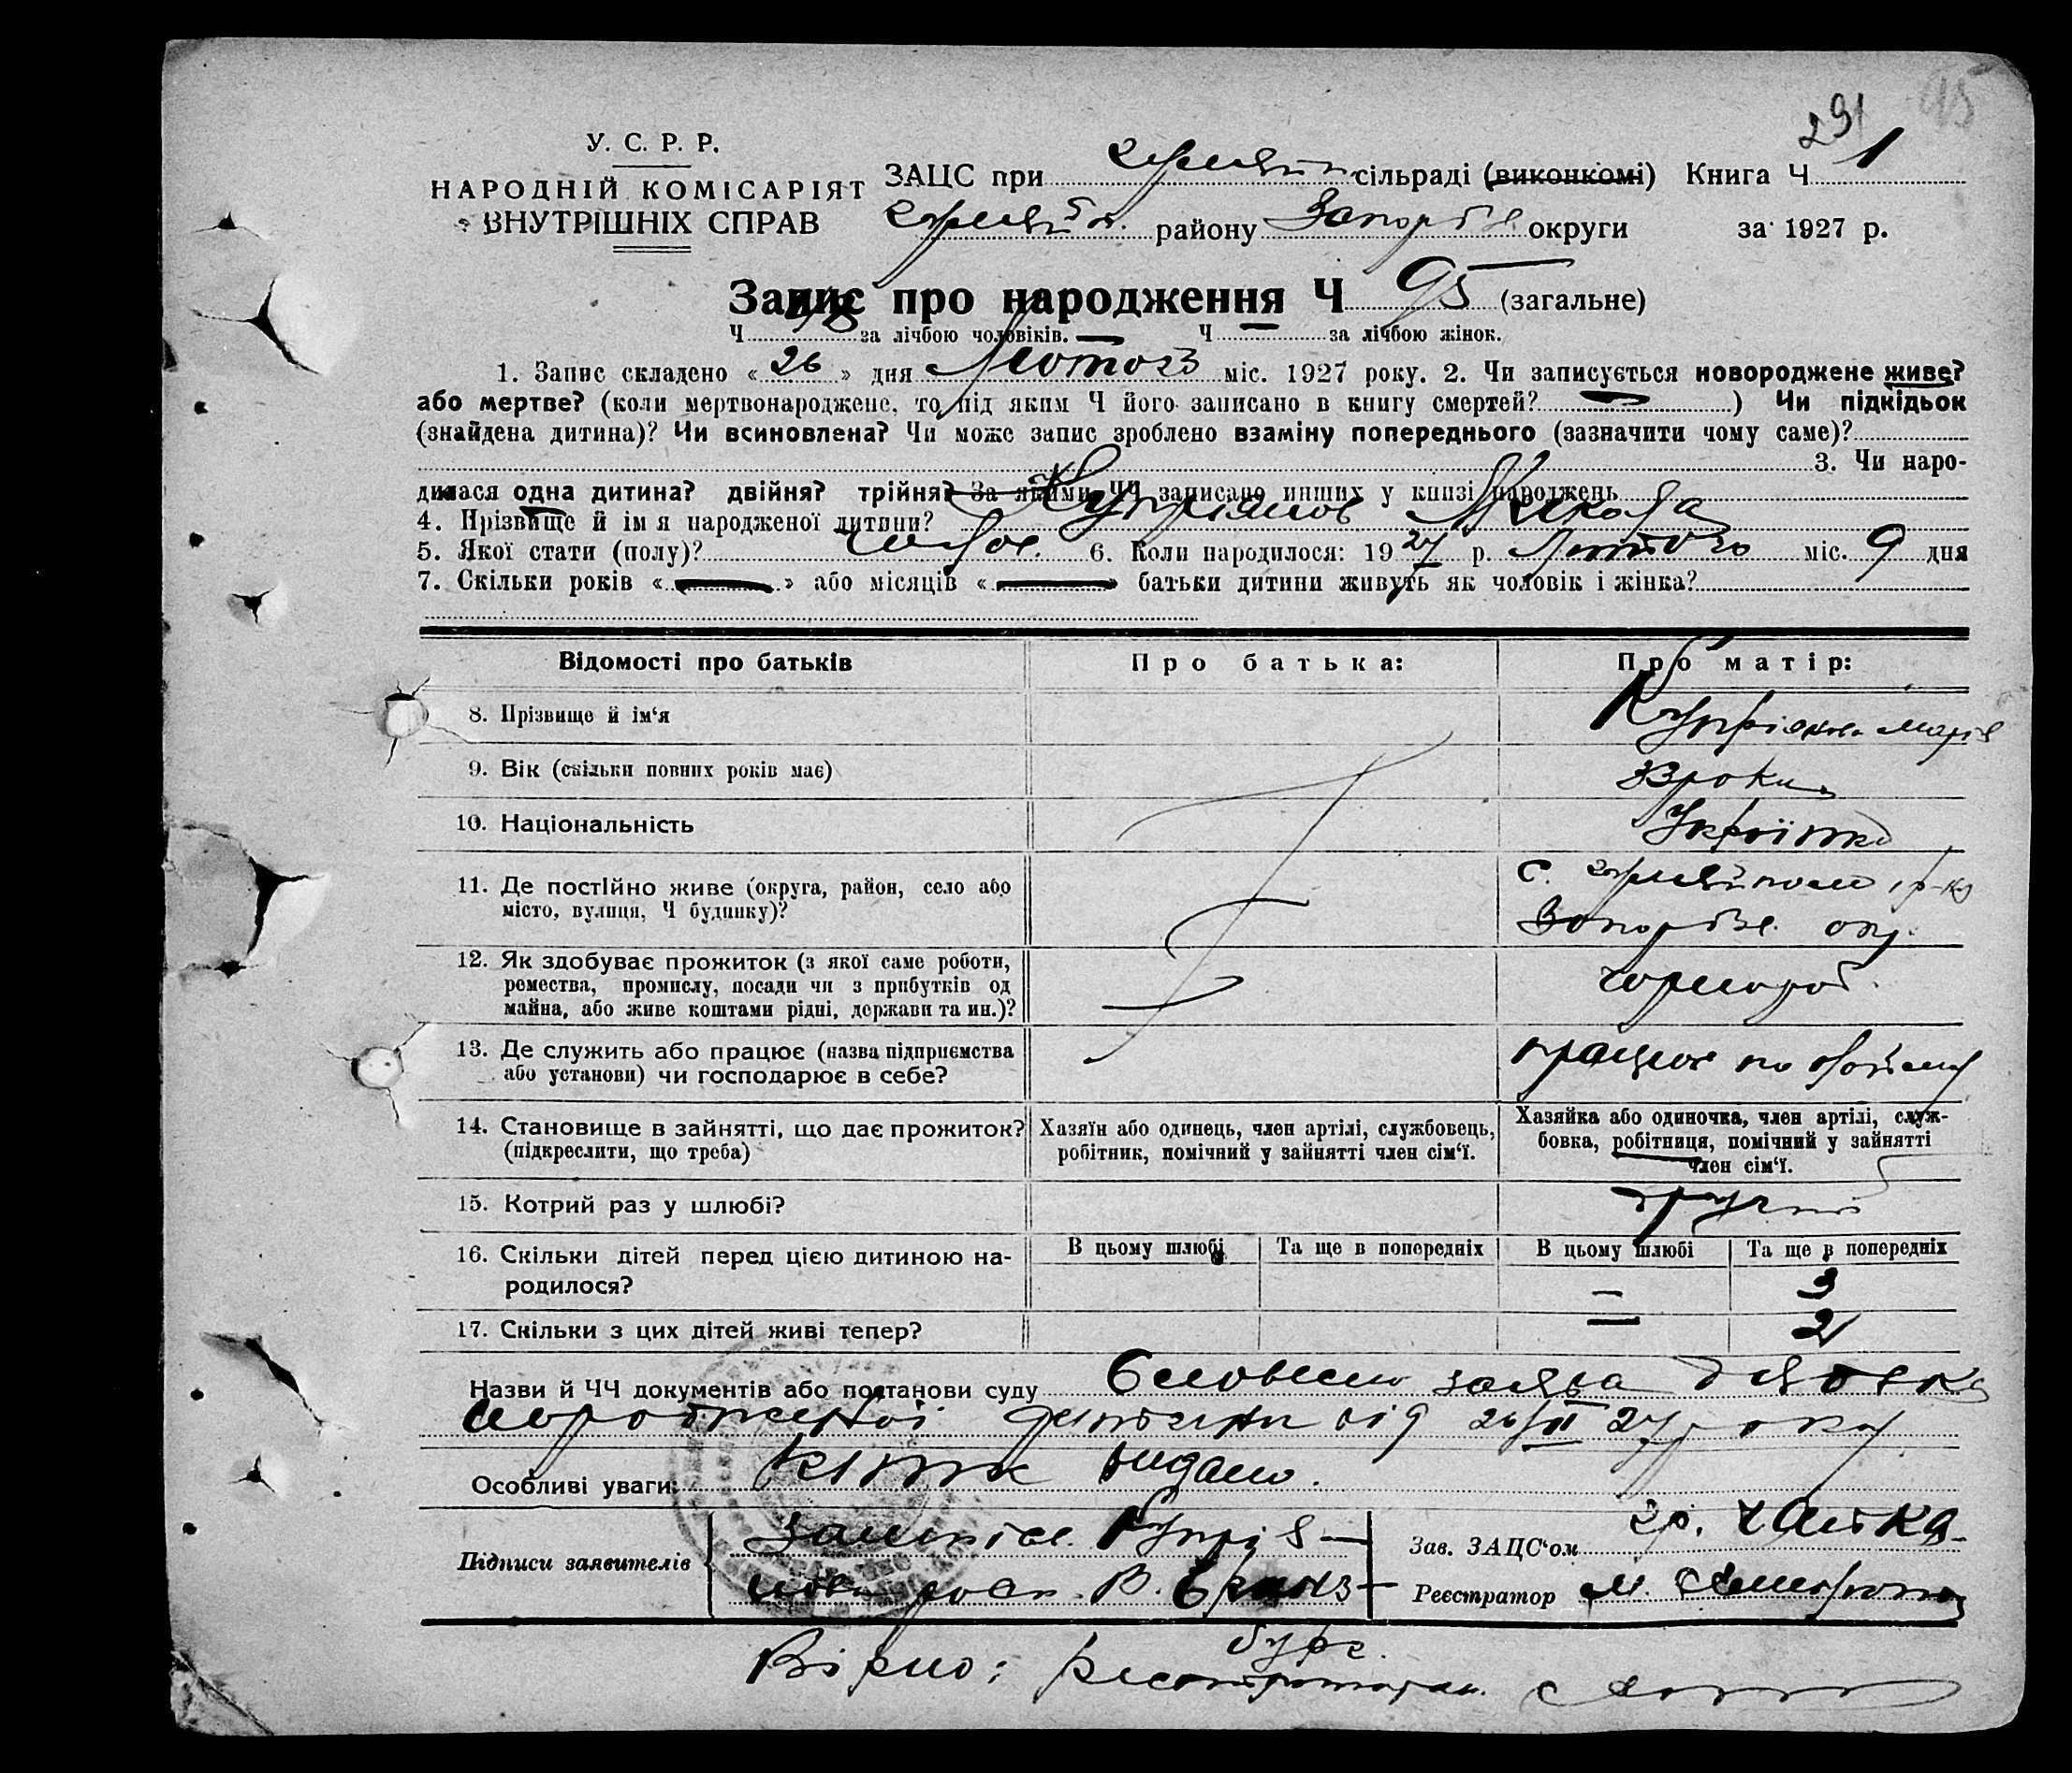 95
291
У. С. Р. Р.
НАРОДНІЙ КОМІСАРІЯТ
ВНУТРІШНІХ СПРАВ
ЗАЦС при сільраді (виконкомі) Книга Ч 1
району Запорізк округи за 1927 р.
Запис про народження Ч 95 (загальне)
Ч 48 за лічбою чоловіків. — Ч — за лічбою жінок.
1. Запис складено « 26 » дня Лютого міс. 1927 року. 2. Чи записується новороджене живе?
або мертве? (коли мертвонароджене, то під яким Ч його записано в книгу смертей? — ) Чи підкідьок
(знайдена дитина)? Чи всиновлена? Чи може запис зроблено взаміну попереднього (зазначити чому саме)?
3. Чи наро-
дилася одна дитина? двійня? трійня? За якими ЧЧ записано инших у книзі народжень
4. Прізвище й ім я народженої дитини? Купріянов Микола
5. Якої стати (полу)? чолов. 6. Коли народилося: 19 27 р. Лютого міс. 9 дня
7. Скільки років « — » або місяців « — » батьки дитини живуть як чоловік і жінка?
Відомості про батьків Про батька: Про матір:
8. Прізвище й ім‘я Купріянова Марія
9. Вік (скільки повних років має) 33 роки
10. Національність Українка
11. Де постійно живе (округа, район, село або
місто, вулиця, Ч будинку)?
с. р-ку
Запорізк. окр.
12. Як здобуває прожиток (з якої саме роботи,
ремества, промислу, посади чи з прибутків од
майна, або живе коштами рідні, держави та ин.)?
чорнороб.
13. Де служить або працює (назва підприємства
або установи) чи господарює в себе?
працює по найму
14. Становище в зайнятті, що дає прожиток?
(підкреслити, що треба)
Хазяїн або одинець, член артілі, службовець,
робітник, помічний у зайнятті член сім‘ї.
Хазяйка або одиночка, член артілі, служ-
бовка, робітниця, помічний у зайнятті
член сім‘ї.
15. Котрий раз у шлюбі? другий
16. Скільки дітей перед цією дитиною на-
родилося?
В цьому шлюбі Та ще в попередніх В цьому шлюбі Та ще в попередніх
— 3
17. Скільки з цих дітей живі тепер? — 2
Назви й ЧЧ документів або постанови суду Словесна заява
народженої дитини від 26/II 27 року
Особливі уваги: витяг видано.
Підписи заявителів Купрія-
нова В.
Зав. ЗАЦС‘ом
Реєстратор М.
Вірно: